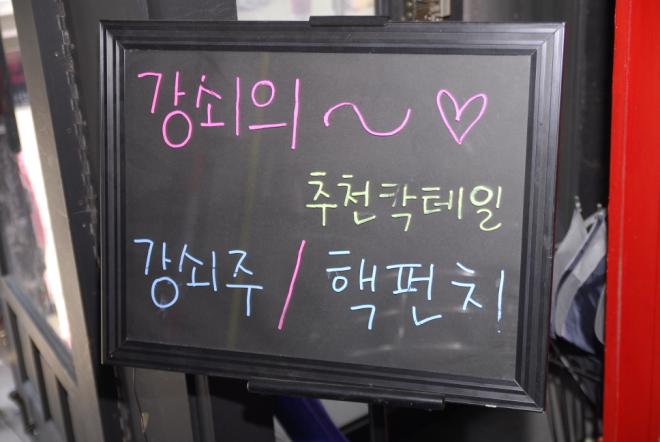 강쇠의~♡
추천칵테일
강쇠주/핵펀치